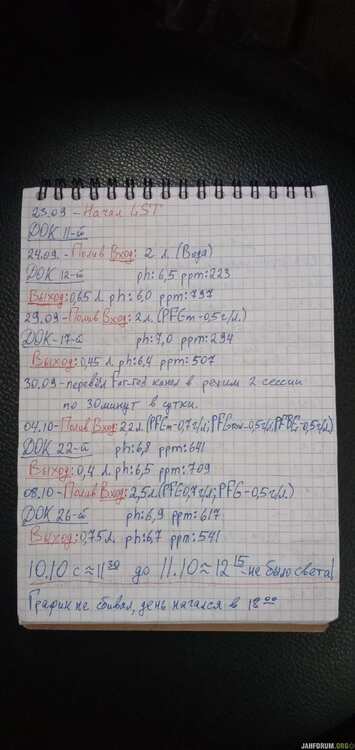 23.09 - Начал LST
ДОК 11-й
24.09. - Полив Вход: 2 л. (Вода)
ДОК 12-й ph: 6,5 ppm: 223
Выход: 0,65 л. ph: 6,0 ppm: 797
29.09 - Полив Вход: 2 л. (PFGm - 0,5 г/л.)
ДОК - 17-й ph: 7,0 ppm: 294
Выход: 0,45 л. ph: 6,4 ppm: 507
30.09 - перевёл канал в режим 2 сессии
по 30 минут в сутки.
04.10 - Полив Вход: 2,2 л. - 0,7 г/л; - 0,5 г/л; - 0,5 г/л.)
ДОК 22-й ph: 6,8 ppm: 641
Выход: 0,4 л. ph: 6,5 ppm: 709
08.10 - Полив Вход: 2,5 л. 0,7 г/л; PFG - 0,5 г/л.)
ДОК 26-й ph: 6,9 ppm: 617
Выход: 0,75 л. ph: 6,7 ppm: 541
10.10 с ≈ 11 30 до 11.10 ≈ 12 15 - не было света!
График не сбивал, день начался в 18 00
JAHFORUM.ORG